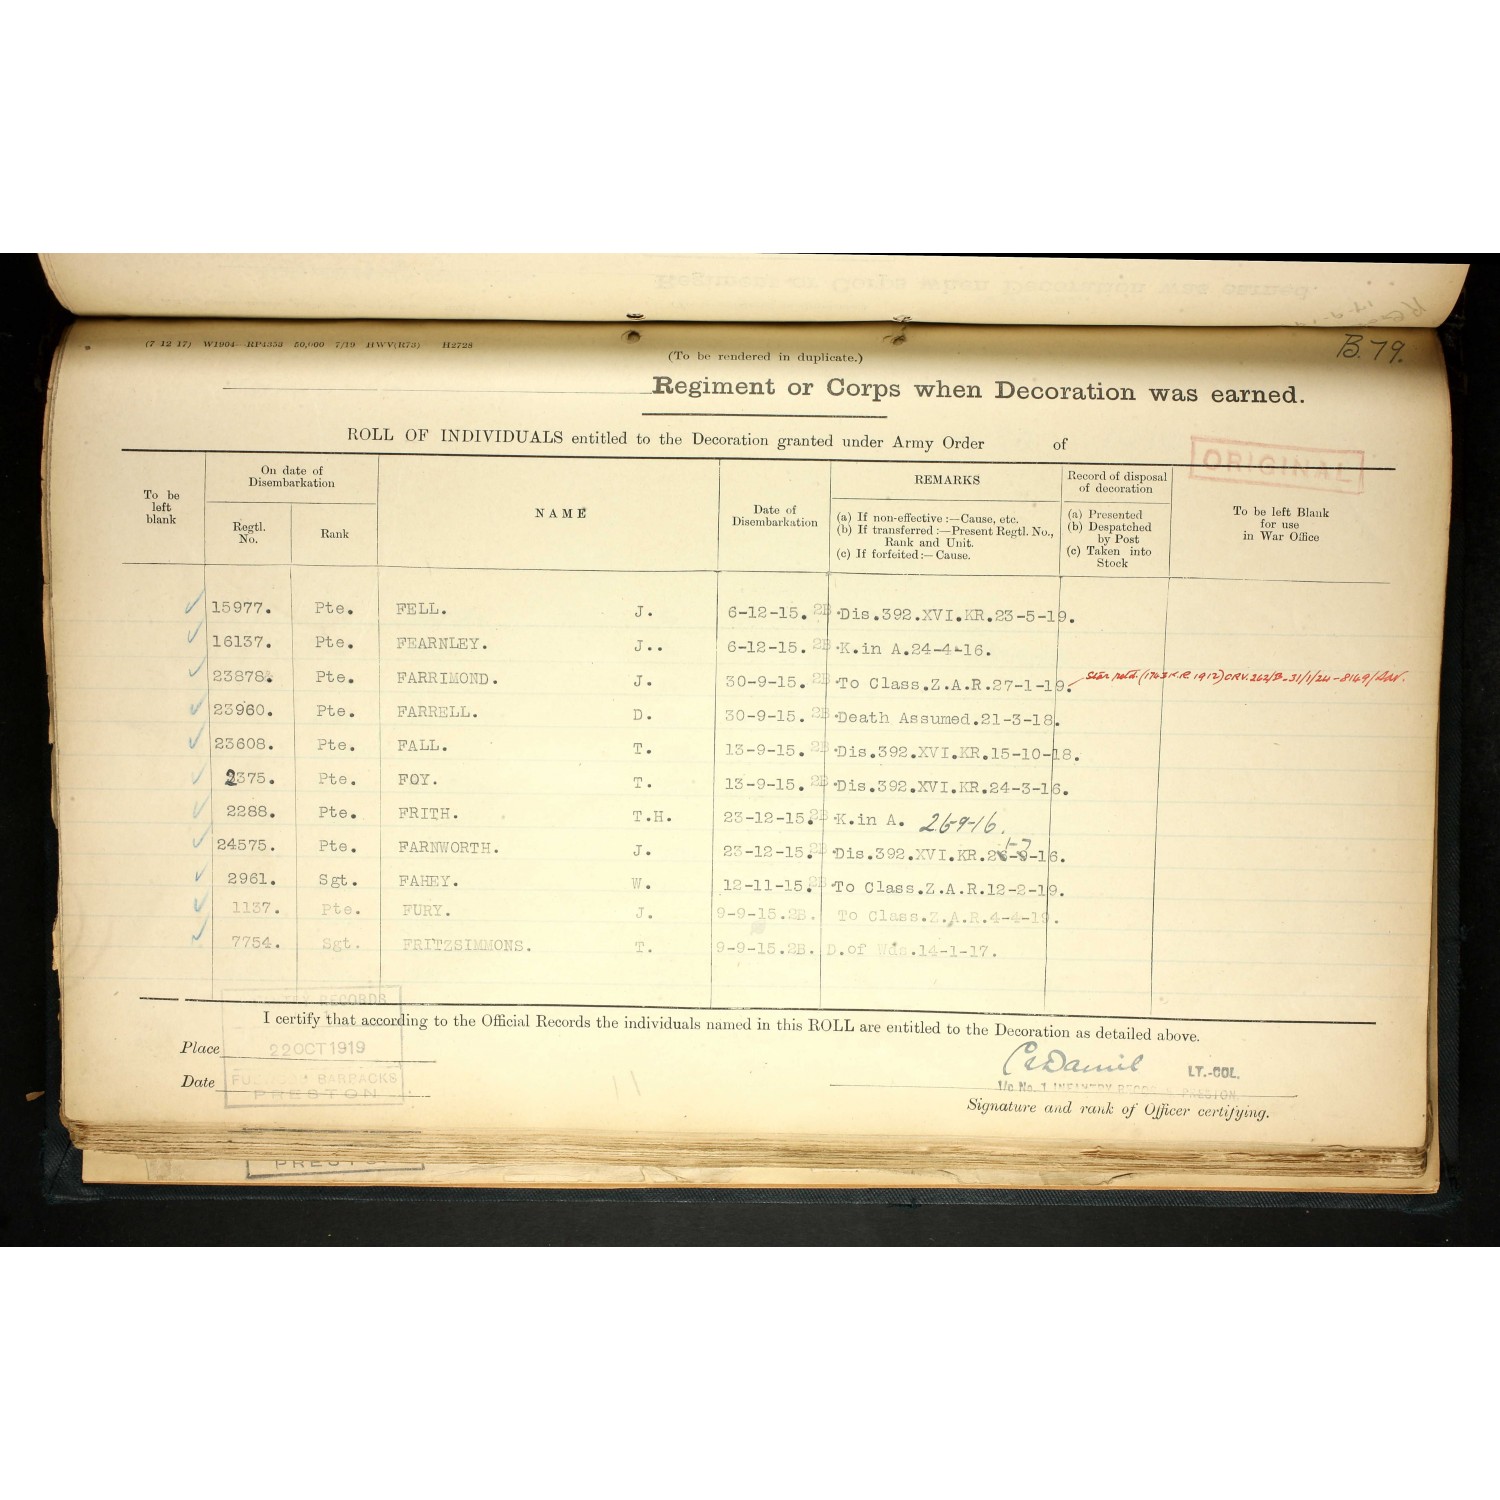 B.79.
(7 12 17) W1904—RP4353 50,000 7/19 HWV(R73) H2728
(To be rendered in duplicate.)
Regiment or Corps when Decoration was earned.
ROLL OF INDIVIDUALS entitled to the Decoration granted under Army Order of
ORIGINAL
To be left blank
On date of Disembarkation
Regtl. No.
Rank
NAME
Date of Disembarkation
REMARKS
(a) If non-effective :—Cause, etc.
(b) If transferred :—Present Regtl. No., Rank and Unit.
(c) If forfeited :— Cause.
Record of disposal of decoration
(a) Presented
(b) Despatched by Post
(c) Taken into Stock
To be left Blank for use in War Office
15977. Pte. FELL. J. 6-12-15. 2B Dis.392.XVI.KR.23-5-19.
16137. Pte. FEARNLEY. J.. 6-12-15. 2B K.in A.24-4-16.
23878. Pte. FARRIMOND. J. 30-9-15. 2B To Class.Z.A.R.27-1-19. (1743 K.R 1912) 262/B-31/1/24-8169/
23960. Pte. FARRELL. D. 30-9-15. 2B Death Assumed.21-3-18.
23608. Pte. FALL. T. 13-9-15. 2B Dis.392.XVI.KR.15-10-18.
2375. Pte. FOY. T. 13-9-15. 2B Dis.392.XVI.KR.24-3-16.
2288. Pte. FRITH. T.H. 23-12-15. 2B K.in A.
24575. Pte. FARNWORTH. J. 23-12-15. Dis.392.XVI.KR.
2961. Sgt. FAHEY. W. 12-11-15. 2B To Class.Z.A.R.12-2-19.
1137. Pte. FURY. J. 9-9-15.2B. To Class.Z.A.R.4-4-19.
7754. Sgt. FRITZSIMMONS. T. 9-9-15.2B. D.of Wds.14-1-17.
I certify that according to the Official Records the individuals named in this ROLL are entitled to the Decoration as detailed above.
RECORDS
Place
22 OCT 1919
LT.-COL.
Date
BARRACKS
PRESTON
I/c No. 1 INFANTRY RECORDS PRESTON.
Signature and rank of Officer certifying.
PRESTON